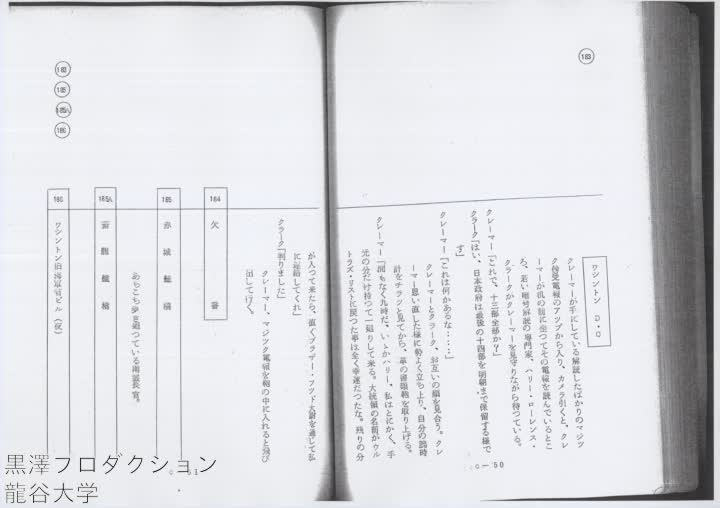 183
ワシントン D・C
クレーマーが手にしている解読したばかりのマジッ
ク傍受電報のアップから入り、カメラ引くと、クレ
ーマーが机の前に坐ってその電報を読んでいるとこ
ろ、若い暗号解読の専門家、ハリー・ローレンス・
クラークがクレーマーを見守りながら待っている。
クレーマー「これで、十三部全部か？」
クラーク「はい、日本政府は最後の十四部を明朝まで保留する様で
す」
クレーマー「これは何かあるな……」
クレーマーとクラーク、お互いの顔を見合う。クレ
ーマー思い直した様に勢よく立ち上り、自分の腕時
計をチラッと見てから、革の書類鞄を取り上げる。
クレーマー「間もなく九時だ、いゝかハリー、私はとにかく、手
元の分だけ持って一廻りして来る。大統領の名前がウル
トラズ・リストに戻った事は全く幸運だったな。残りの分
○―50
182
185
185A
186
が入って来たら、直ぐブラザー・フッド大尉を通じて私
に連絡してくれ」
クラーク「判りました」
クレーマー、マジック電報を鞄の中に入れると飛び
出して行く。
184 欠番
185 赤城艦橋
あちこち歩き廻っている南雲長官。
185A
186 ワシントン
ビル（夜）
51
黒澤プロダクション
龍谷大学